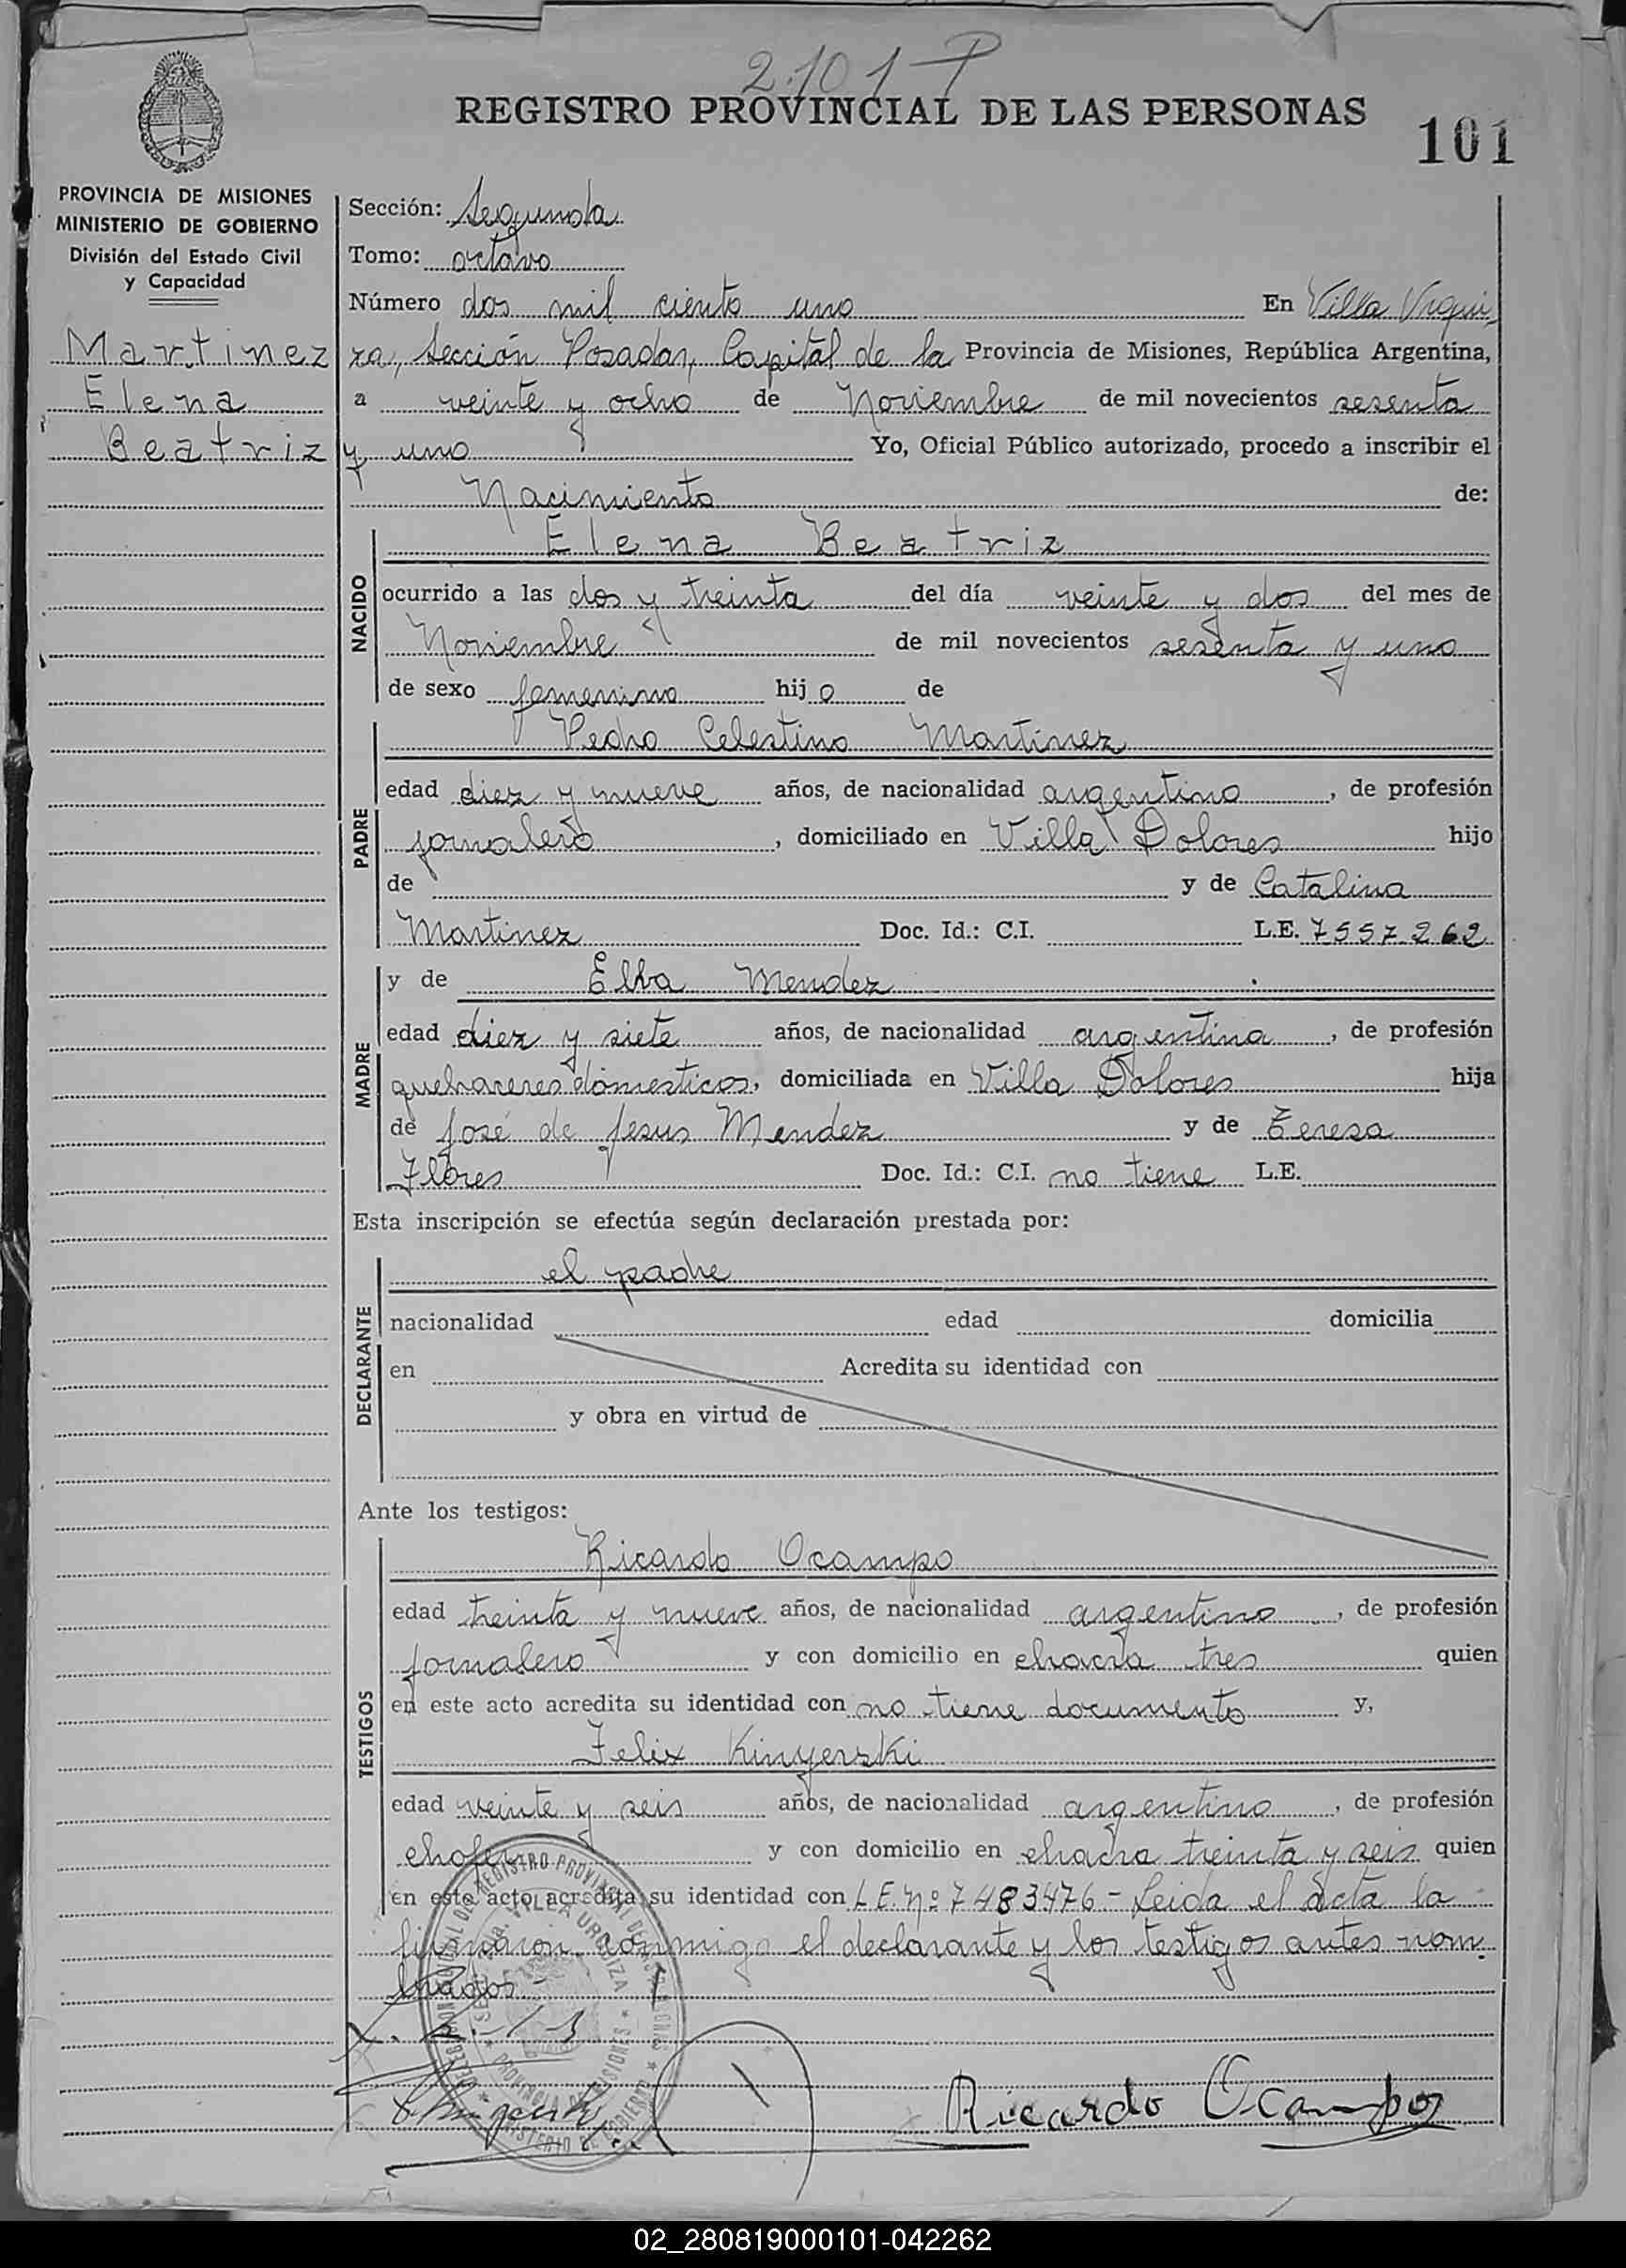 2.101 P
REGISTRO PROVINCIAL DE LAS PERSONAS
101
PROVINCIA DE MISIONES
MINISTERIO DE GOBIERNO
División del Estado Civil
y Capacidad
Martinez
Elena
Beatriz
Sección: Segunda
Tomo: octavo
Número dos mil ciento uno En Villa Urqui
za, Sección Posadas, Capital de la Provincia de Misiones, República Argentina,
a veinte y ocho de Noviembre de mil novecientos sesenta
y uno Yo, Oficial Público autorizado, procedo a inscribir el
Nacimiento de:
NACIDO
Elena Beatriz
ocurrido a las dos y treinta del día veinte y dos del mes de
Noviembre de mil novecientos sesenta y uno
de sexo femenino hijo de
PADRE
Pedro Celestino Martinez
edad diez y nueve años, de nacionalidad argentino, de profesión
jornalero, domiciliado en Villa Dolores hijo
de y de Catalina
Martinez Doc. Id.: C.I. L.E. 7557262
MADRE
y de Elba Mendez
edad diez y siete años, de nacionalidad argentina, de profesión
quehaceres domesticos, domiciliada en Villa Dolores hija
de José de Jesus Mendez y de Teresa
Flores Doc. Id.: C.I. no tiene L.E.
Esta inscripción se efectúa según declaración prestada por:
DECLARANTE
el padre
nacionalidad edad domicilia
en Acredita su identidad con
y obra en virtud de
Ante los testigos:
TESTIGOS
Ricardo Ocampo
edad treinta y nueve años, de nacionalidad argentino, de profesión
jornalero y con domicilio en chacra tres quien
en este acto acredita su identidad con no tiene documento y,
Felix Kinyerski
edad veinte y seis años, de nacionalidad argentino, de profesión
chofer y con domicilio en chacra treinta y seis quien
en este acto acredita su identidad con L.E. Nº 7483476.- Leida el acta la
firmaron conmigo el declarante y los testigos antes nom
brados.-
VILLA URQUIZA
PROVINCIA DE MISIONES
Ricardo Ocampo
02_280819000101-042262